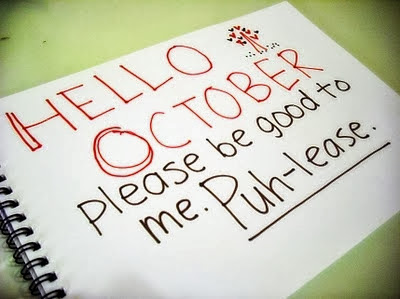 HELLO
OCTOBER
please be good to
me. Puh-lease.